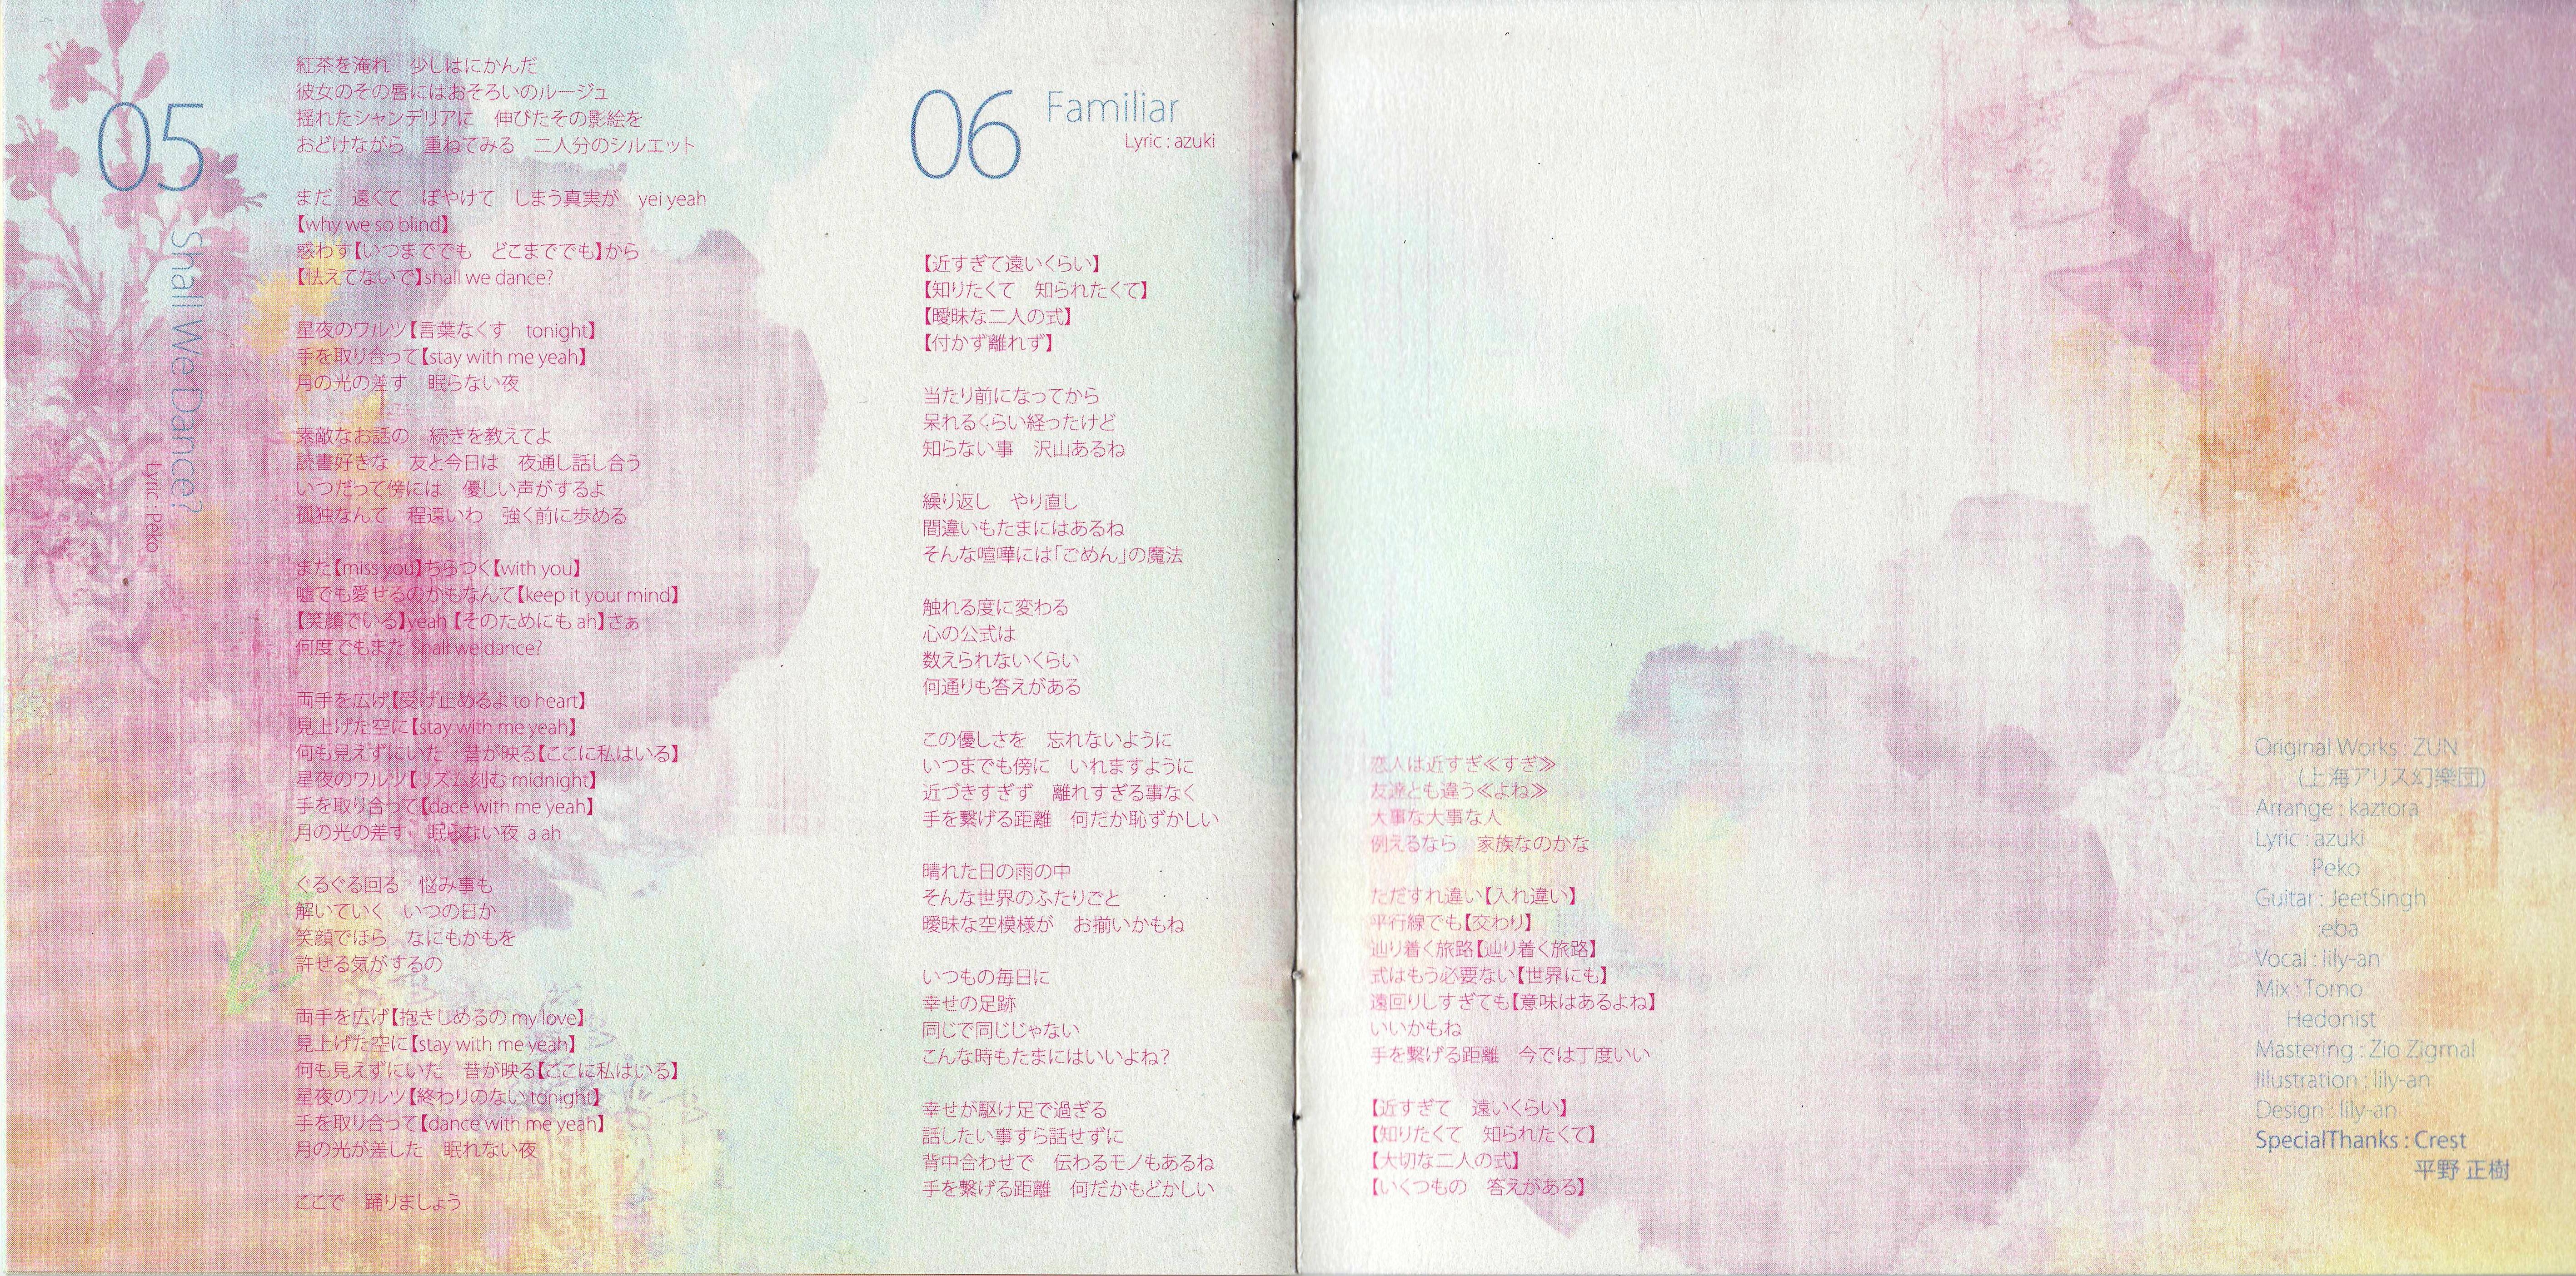 05
Shall We Dance?
Lyric : Peko
紅茶を淹れ　少しはにかんだ
彼女のその唇にはおそろいのルージュ
揺れたシャンデリアに　伸びたその影絵を
おどけながら　重ねてみる　二人分のシルエット
まだ　遠くて　ぼやけて　しまう真実が　yei yeah
【why we so blind】
惑わす【いつまででも　どこまででも】から
【怯えてないで】shall we dance?
星夜のワルツ【言葉なくす　tonight】
手を取り合って【stay with me yeah】
月の光の差す　眠らない夜
素敵なお話の　続きを教えてよ
読書好きな　友と今日は　夜通し話し合う
いつだって傍には　優しい声がするよ
孤独なんて　程遠いわ　強く前に歩める
また【miss you】ちらつく【with you】
嘘でも愛せるのかもなんて【keep it your mind】
【笑顔でいる】yeah【そのためにも ah】さぁ
何度でもまた Shall we dance?
両手を広げ【受け止めるよ to heart】
見上げた空に【stay with me yeah】
何も見えずにいた　昔が映る【ここに私はいる】
星夜のワルツ【リズム刻む midnight】
手を取り合って【dace with me yeah】
月の光の差す　眠らない夜 a ah
ぐるぐる回る　悩み事も
解いていく　いつの日か
笑顔でほら　なにもかもを
許せる気がするの
両手を広げ【抱きしめるの my love】
見上げた空に【stay with me yeah】
何も見えずにいた　昔が映る【ここに私はいる】
星夜のワルツ【終わりのない tonight】
手を取り合って【dance with me yeah】
月の光が差した　眠れない夜
ここで　踊りましょう
06 Familiar
Lyric : azuki
【近すぎて遠いくらい】
【知りたくて　知られたくて】
【曖昧な二人の式】
【付かず離れず】
当たり前になってから
呆れるくらい経ったけど
知らない事　沢山あるね
繰り返し　やり直し
間違いもたまにはあるね
そんな喧嘩には「ごめん」の魔法
触れる度に変わる
心の公式は
数えられないくらい
何通りも答えがある
この優しさを　忘れないように
いつまでも傍に　いれますように
近づきすぎず　離れすぎる事なく
手を繋げる距離　何だか恥ずかしい
晴れた日の雨の中
そんな世界のふたりごと
曖昧な空模様が　お揃いかもね
いつもの毎日に
幸せの足跡
同じで同じじゃない
こんな時もたまにはいいよね？
幸せが駆け足で過ぎる
話したい事すら話せずに
背中合わせで　伝わるモノもあるね
手を繋げる距離　何だかもどかしい
恋人は近すぎ≪すぎ≫
友達とも違う≪よね≫
大事な大事な人
例えるなら　家族なのかな
ただすれ違い【入れ違い】
平行線でも【交わり】
辿り着く旅路【辿り着く旅路】
式はもう必要ない【世界にも】
遠回りしすぎても【意味はあるよね】
いいかもね
手を繋げる距離　今では丁度いい
【近すぎて　遠いくらい】
【知りたくて　知られたくて】
【大切な二人の式】
【いくつもの　答えがある】
Original Works : ZUN
(上海アリス幻樂団)
Arrange : kaztora
Lyric : azuki
Peko
Guitar : JeetSingh
:eba
Vocal : lily-an
Mix : Tomo
Hedonist
Mastering : Zio Zigmal
Illustration : lily-an
Design : lily-an
SpecialThanks : Crest
平野 正樹